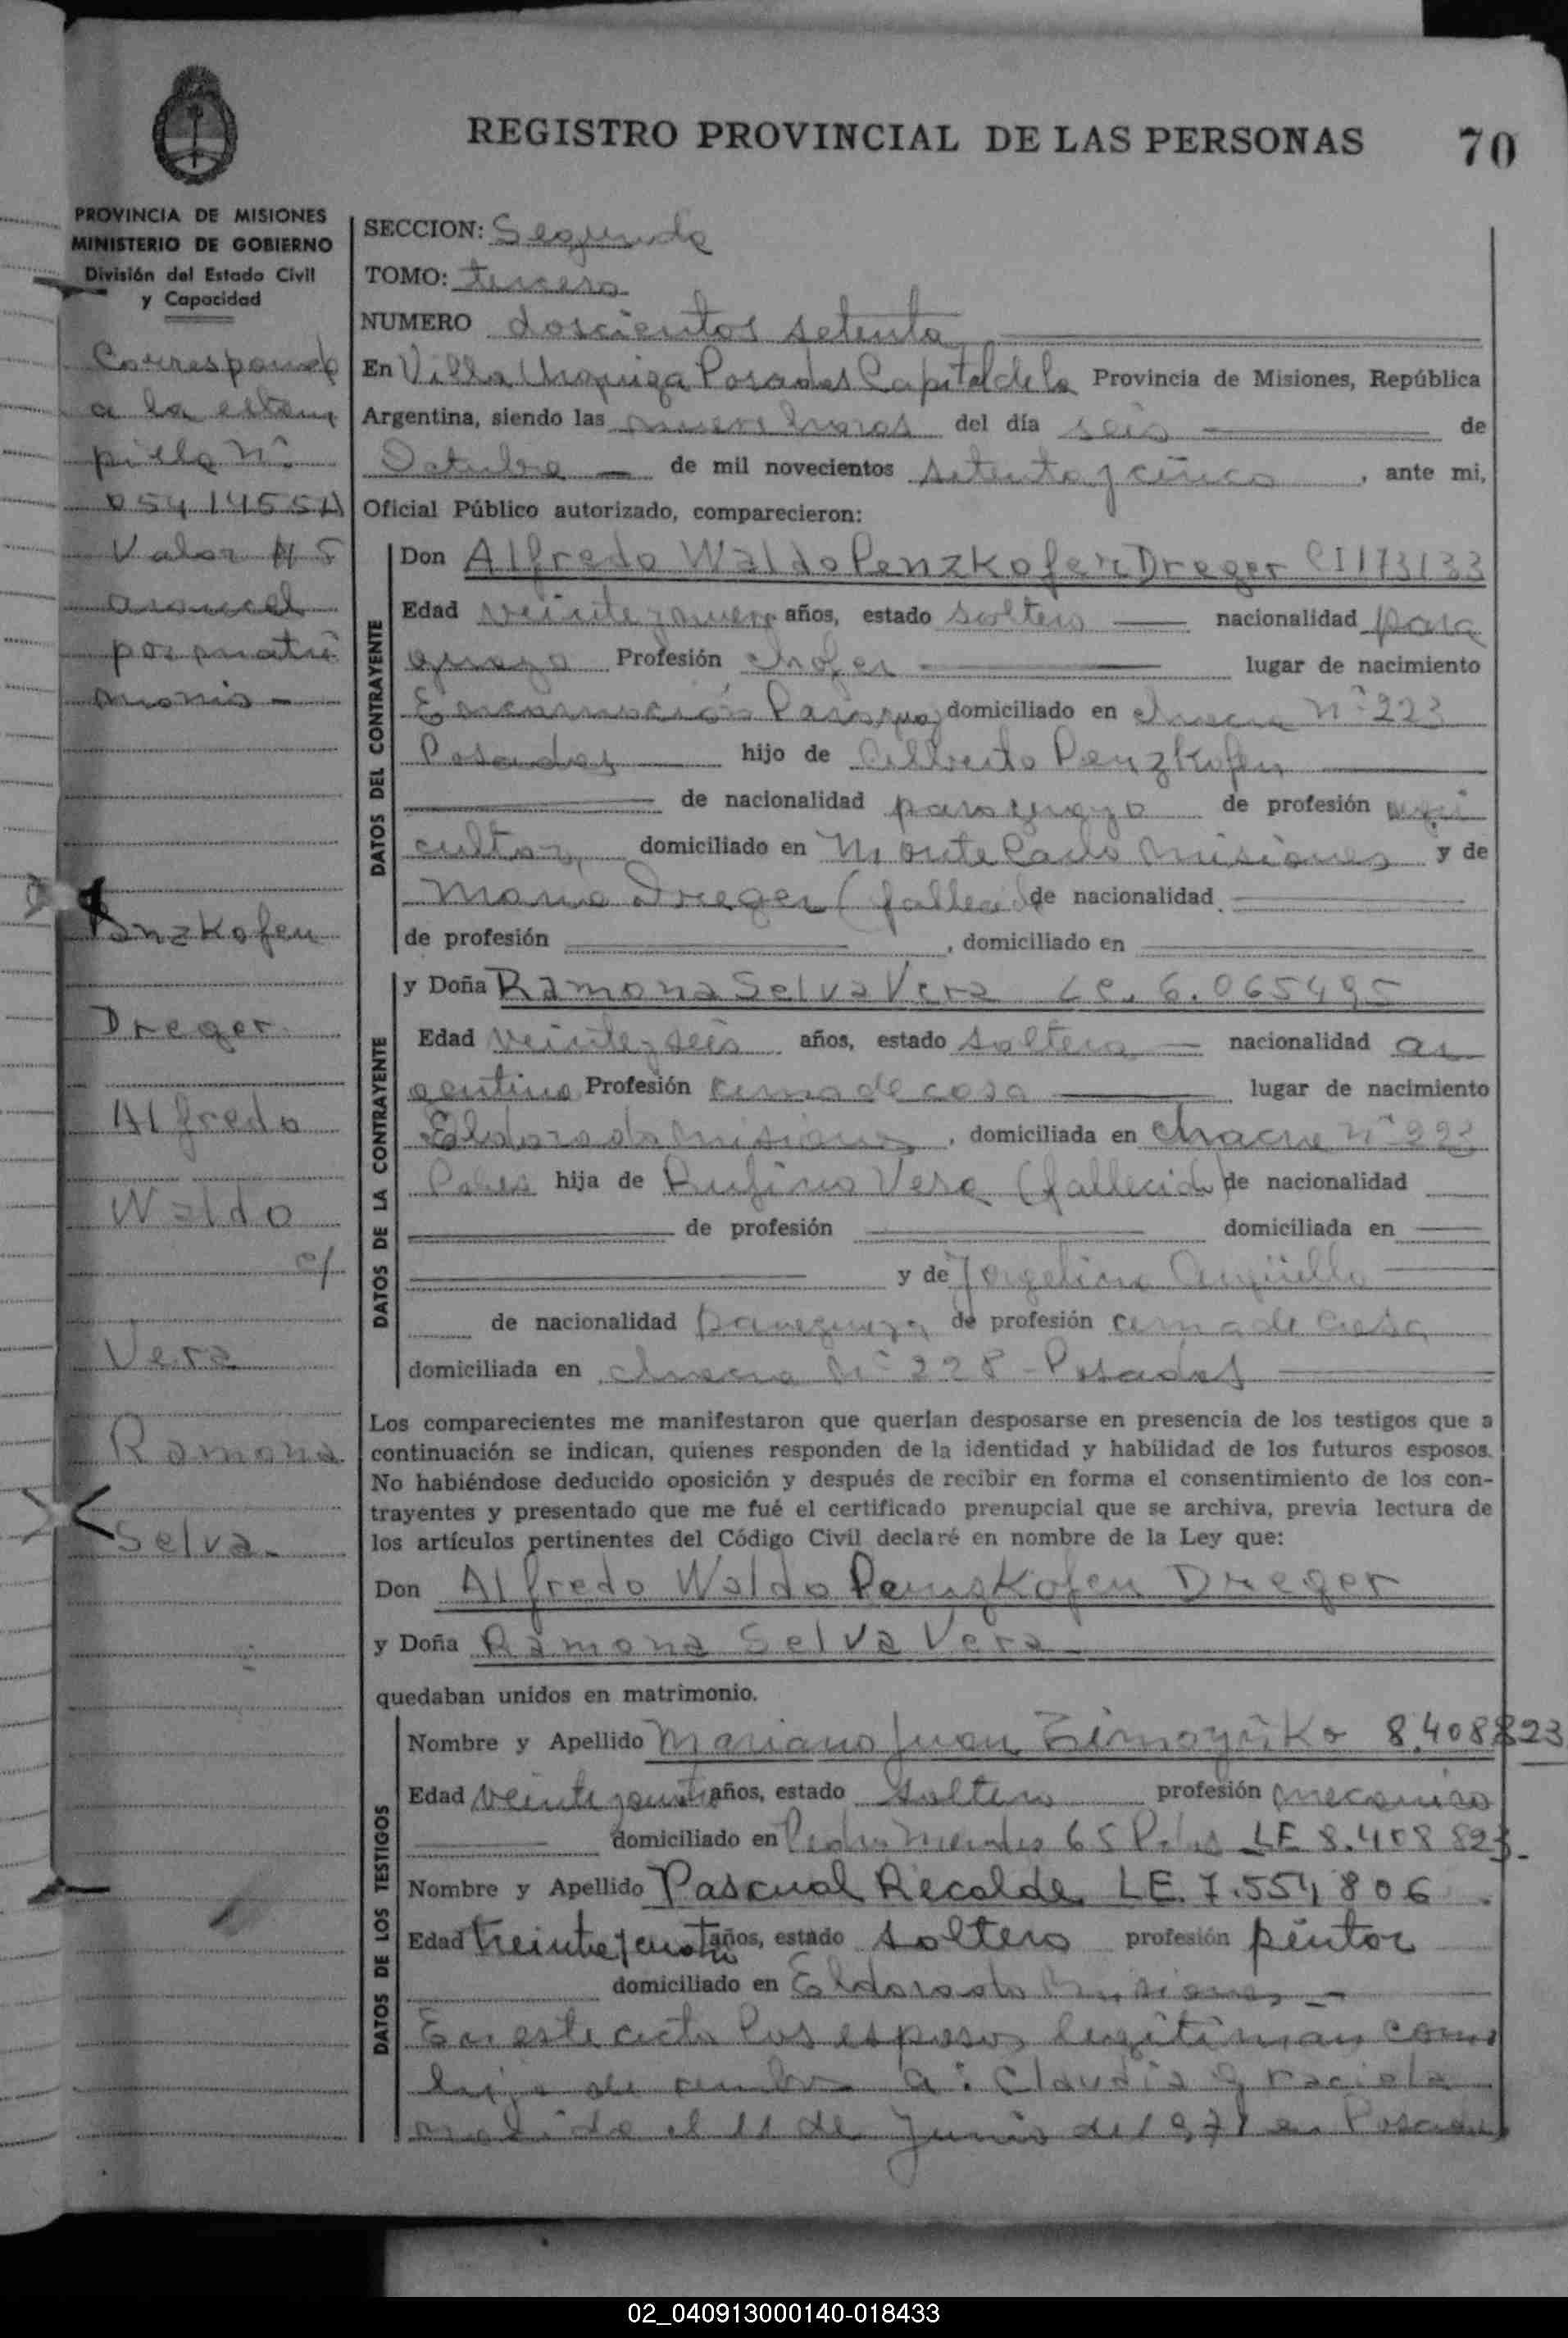 REGISTRO PROVINCIAL DE LAS PERSONAS
70
PROVINCIA DE MISIONES
MINISTERIO DE GOBIERNO
División del Estado Civil
y Capacidad
Corresponde
a la estam
pilla Nº
0541455A
Valor
arancel
por matri
monio -
Penzkofer
Dreger
Alfredo
Waldo
c/
Vera
Ramona
Selva
SECCION: Segunda
TOMO: tercero
NUMERO doscientos setenta
En Villa Urquiza Posadas Capital de la Provincia de Misiones, República
Argentina, siendo las nueve horas del día seis de
Octubre de mil novecientos setenta y cinco, ante mi,
Oficial Público autorizado, comparecieron:
DATOS DEL CONTRAYENTE
Don Alfredo Waldo Penzkofer Dreger CI 173133
Edad veinte y nueve años, estado soltero nacionalidad para
guayo Profesión chofer lugar de nacimiento
Encarnación Paraguay domiciliado en chacra Nº 223
Posadas hijo de Alberto Penzkofer
de nacionalidad paraguayo de profesión agri
cultor, domiciliado en Monte Carlo Misiones y de
María Dreger (fallecida) de nacionalidad
de profesión , domiciliado en
DATOS DE LA CONTRAYENTE
y Doña Ramona Selva Vera LC. 6.065495
Edad veinte y seis años, estado soltera nacionalidad ar
gentina Profesión ama de casa lugar de nacimiento
Eldorado Misiones, domiciliada en chacra Nº 223
Pdas hija de Rufino Vera (fallecido) de nacionalidad
de profesión domiciliada en
y de Jorgelina Argüello
de nacionalidad paraguaya de profesión ama de casa
domiciliada en chacra Nº 228 - Posadas
Los comparecientes me manifestaron que querían desposarse en presencia de los testigos que a
continuación se indican, quienes responden de la identidad y habilidad de los futuros esposos.
No habiéndose deducido oposición y después de recibir en forma el consentimiento de los con-
trayentes y presentado que me fué el certificado prenupcial que se archiva, previa lectura de
los artículos pertinentes del Código Civil declaré en nombre de la Ley que:
Don Alfredo Waldo Penzkofer Dreger
y Doña Ramona Selva Vera
quedaban unidos en matrimonio.
DATOS DE LOS TESTIGOS
Nombre y Apellido Mariano Juan 8.408823
Edad veinte y cuatro años, estado soltero profesión mecánico
domiciliado en Pedro Mendez 65 Pdas LE 8.408 823.
Nombre y Apellido Pascual Recalde LE. 7.554,806
Edad treinta y cuatro años, estado soltero profesión pintor
domiciliado en Eldorado Misiones -
En este acto los esposos legitiman como
hija de ambos a: Claudia Graciela
nacida el 11 de Junio de 1971 en Posadas
02_040913000140-018433